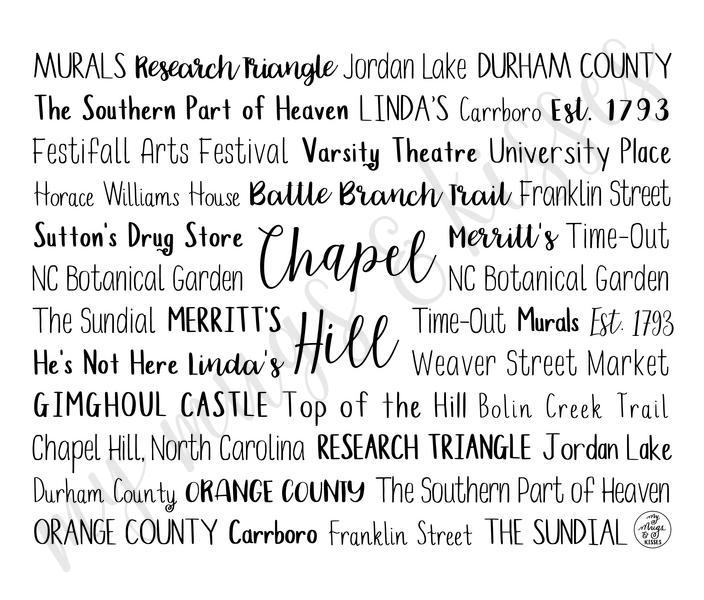 MURALS Research Triangle Jordan Lake DURHAM COUNTY
The Southern Part of Heaven LINDA'S Carrboro Est. 1793
Festifall Arts Festival Varsity Theatre University Place
Horace Williams House Battle Branch Trail Franklin Street
Sutton's Drug Store Merritt's Time-Out
NC Botanical Garden Chapel NC Botanical Garden
The Sundial MERRITT'S Time-Out Murals Est. 1793
He's Not Here Linda's Hill Weaver Street Market
GIMGHOUL CASTLE Top of the Hill Bolin Creek Trail
Chapel Hill, North Carolina RESEARCH TRIANGLE Jordan Lake
Durham County ORANGE COUNTY The Southern Part of Heaven
ORANGE COUNTY Carrboro Franklin Street THE SUNDIAL
my Mugs & KISSES
my mugs & kisses